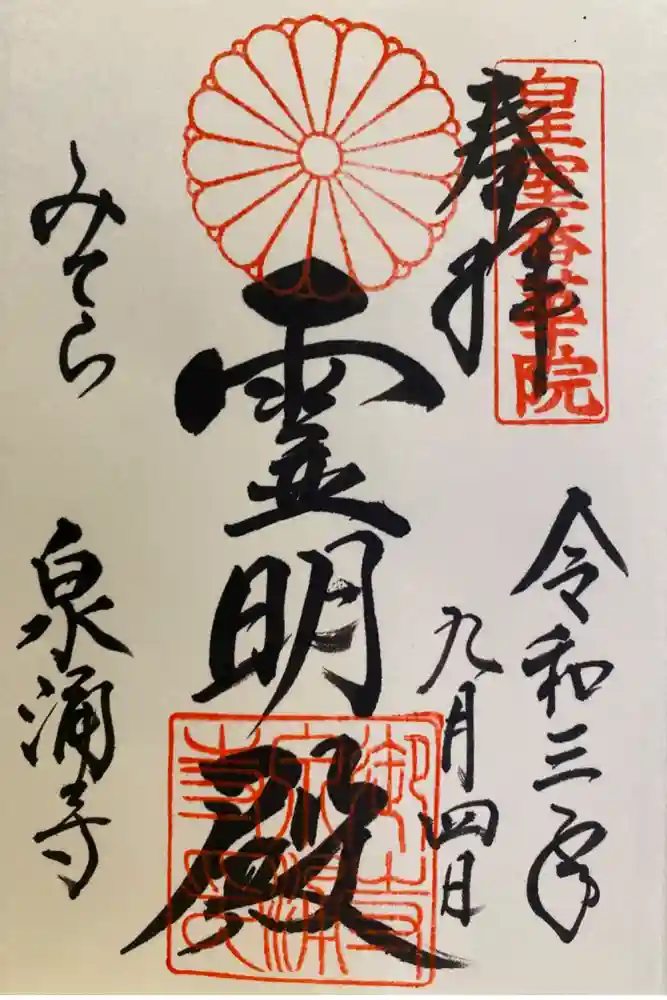 皇室香華院
奉拝
令和三年
九月四日
霊明殿
御寺
泉涌
寺印
みてら
泉涌寺